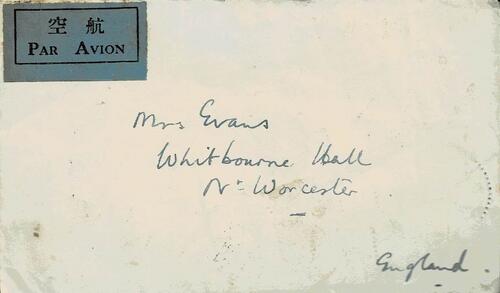 空航
PAR AVION
Mrs Evans
Whitbourne Hall
Nr Worcester
England.